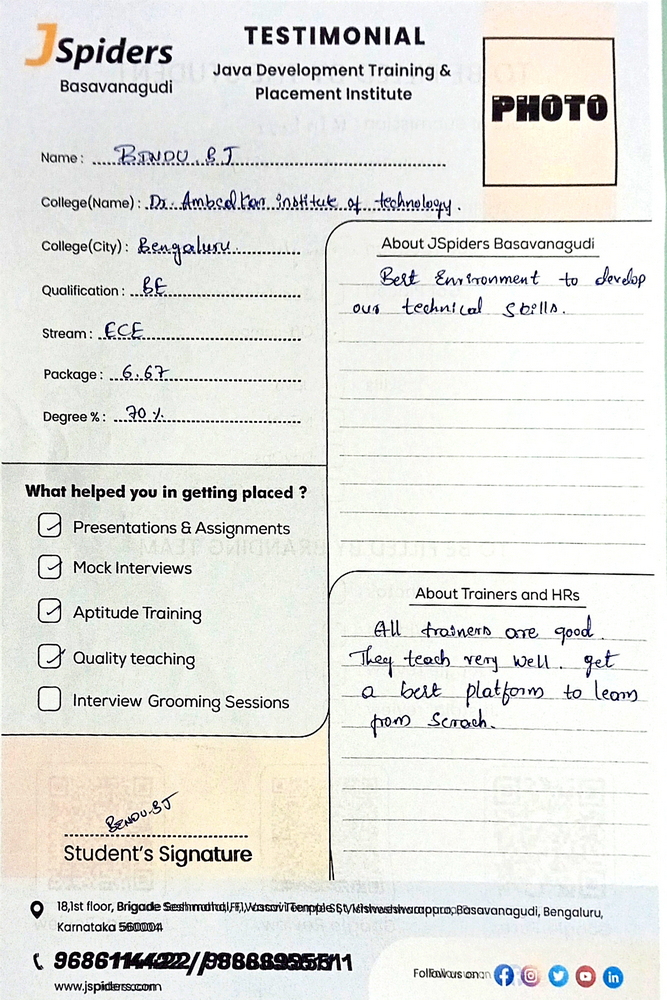 JSpiders
Basavanagudi
TESTIMONIAL
Java Development Training &
Placement Institute
PHOTO
Name : BINDU B J
College(Name) : Dr. Ambedkar institute of technology
College(City) : Bengaluru.
Qualification : BE
Stream : ECE
Package : 6.67
Degree % : 70 %
About JSpiders Basavanagudi
Best Environment to develop
our technical skills.
What helped you in getting placed ?
Presentations & Assignments
Mock Interviews
Aptitude Training
Quality teaching
Interview Grooming Sessions
About Trainers and HRs
All trainers are good.
They teach very well. get
a best platform to learn
from Scrach.
BINDU·BJ
Student's Signature
18,1st floor, Brigade Basavanagudi, Bengaluru,
Karnataka 560004
www.jspiders.com
Follow us on :